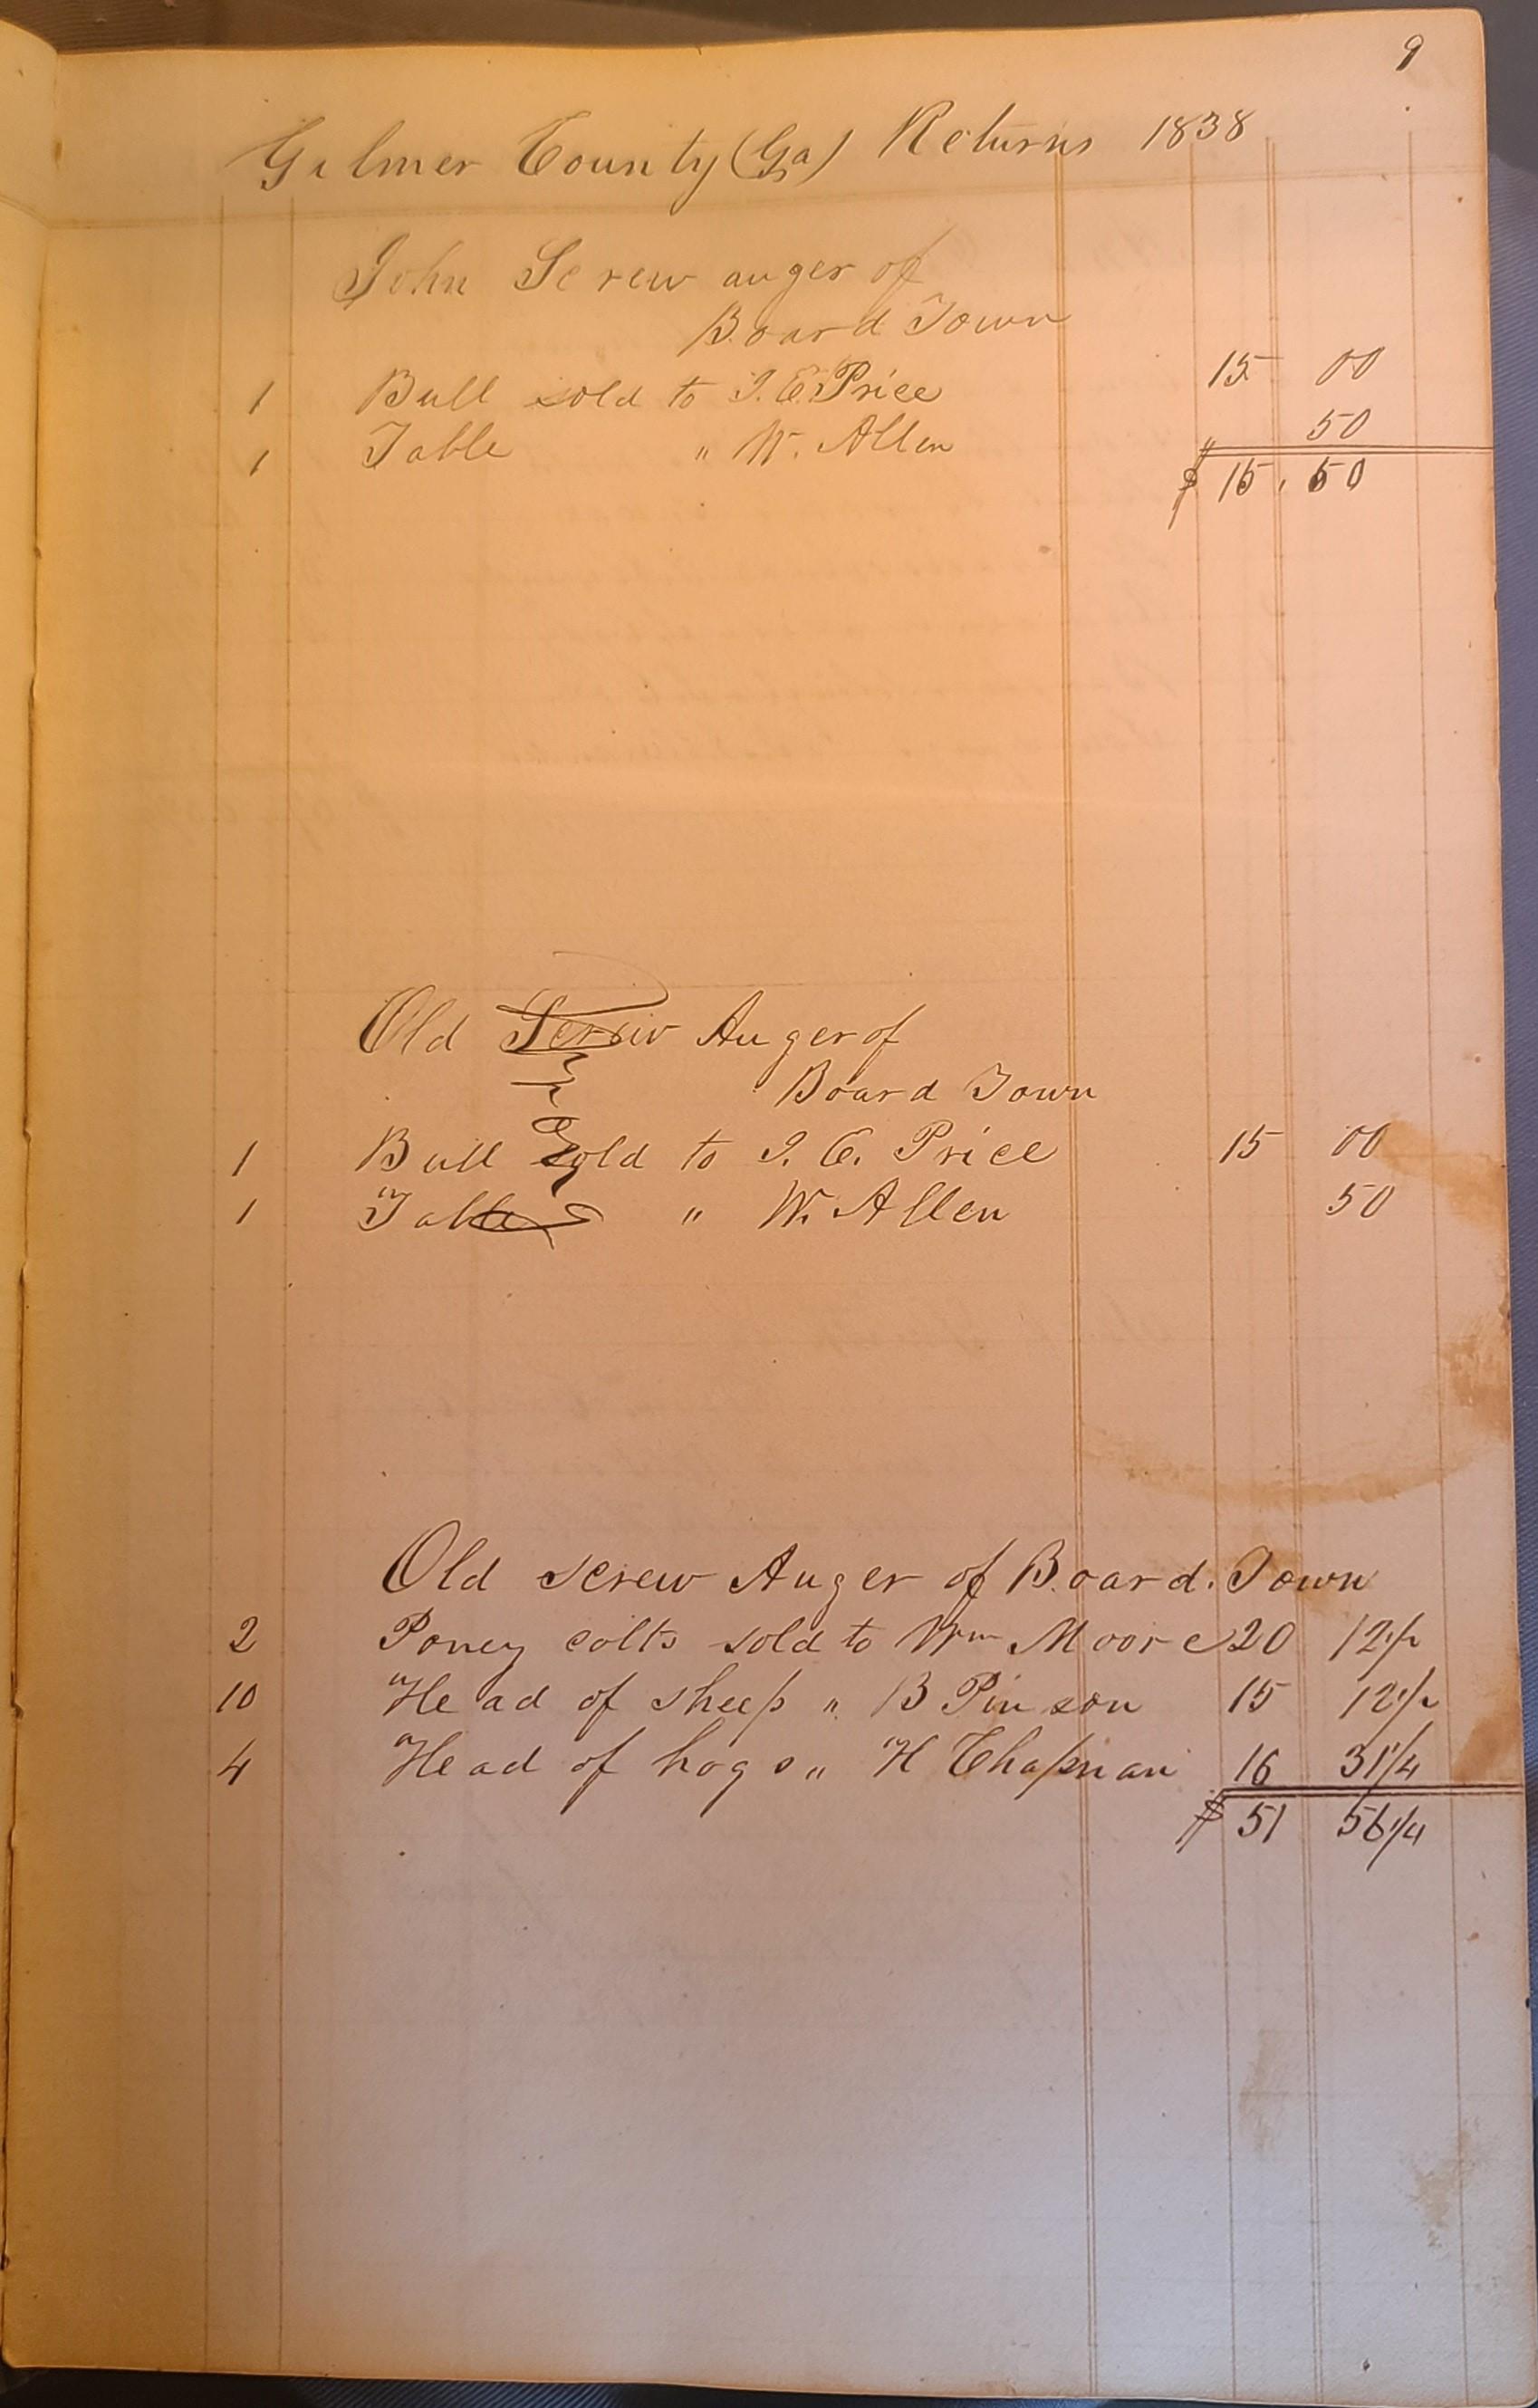 9
Gilmer County (Ga) Returns 1838
John Screw auger of
Board Town
1 Bull sold to I. E. Price 15 00
1 Table " W. Allen 50
$ 15. 50
Old Screw Auger of
Board Town
1 Bull Sold to I. E. Price 15 00
1 Table " W. Allen 50
Old Screw Auger of Board. Town
2 Poney colts sold to Wm Moore 20 12½
10 Head of sheep " B Pinson 15 12½
4 Head of hogs " H Chapman 16 31¼
$ 51 56¼